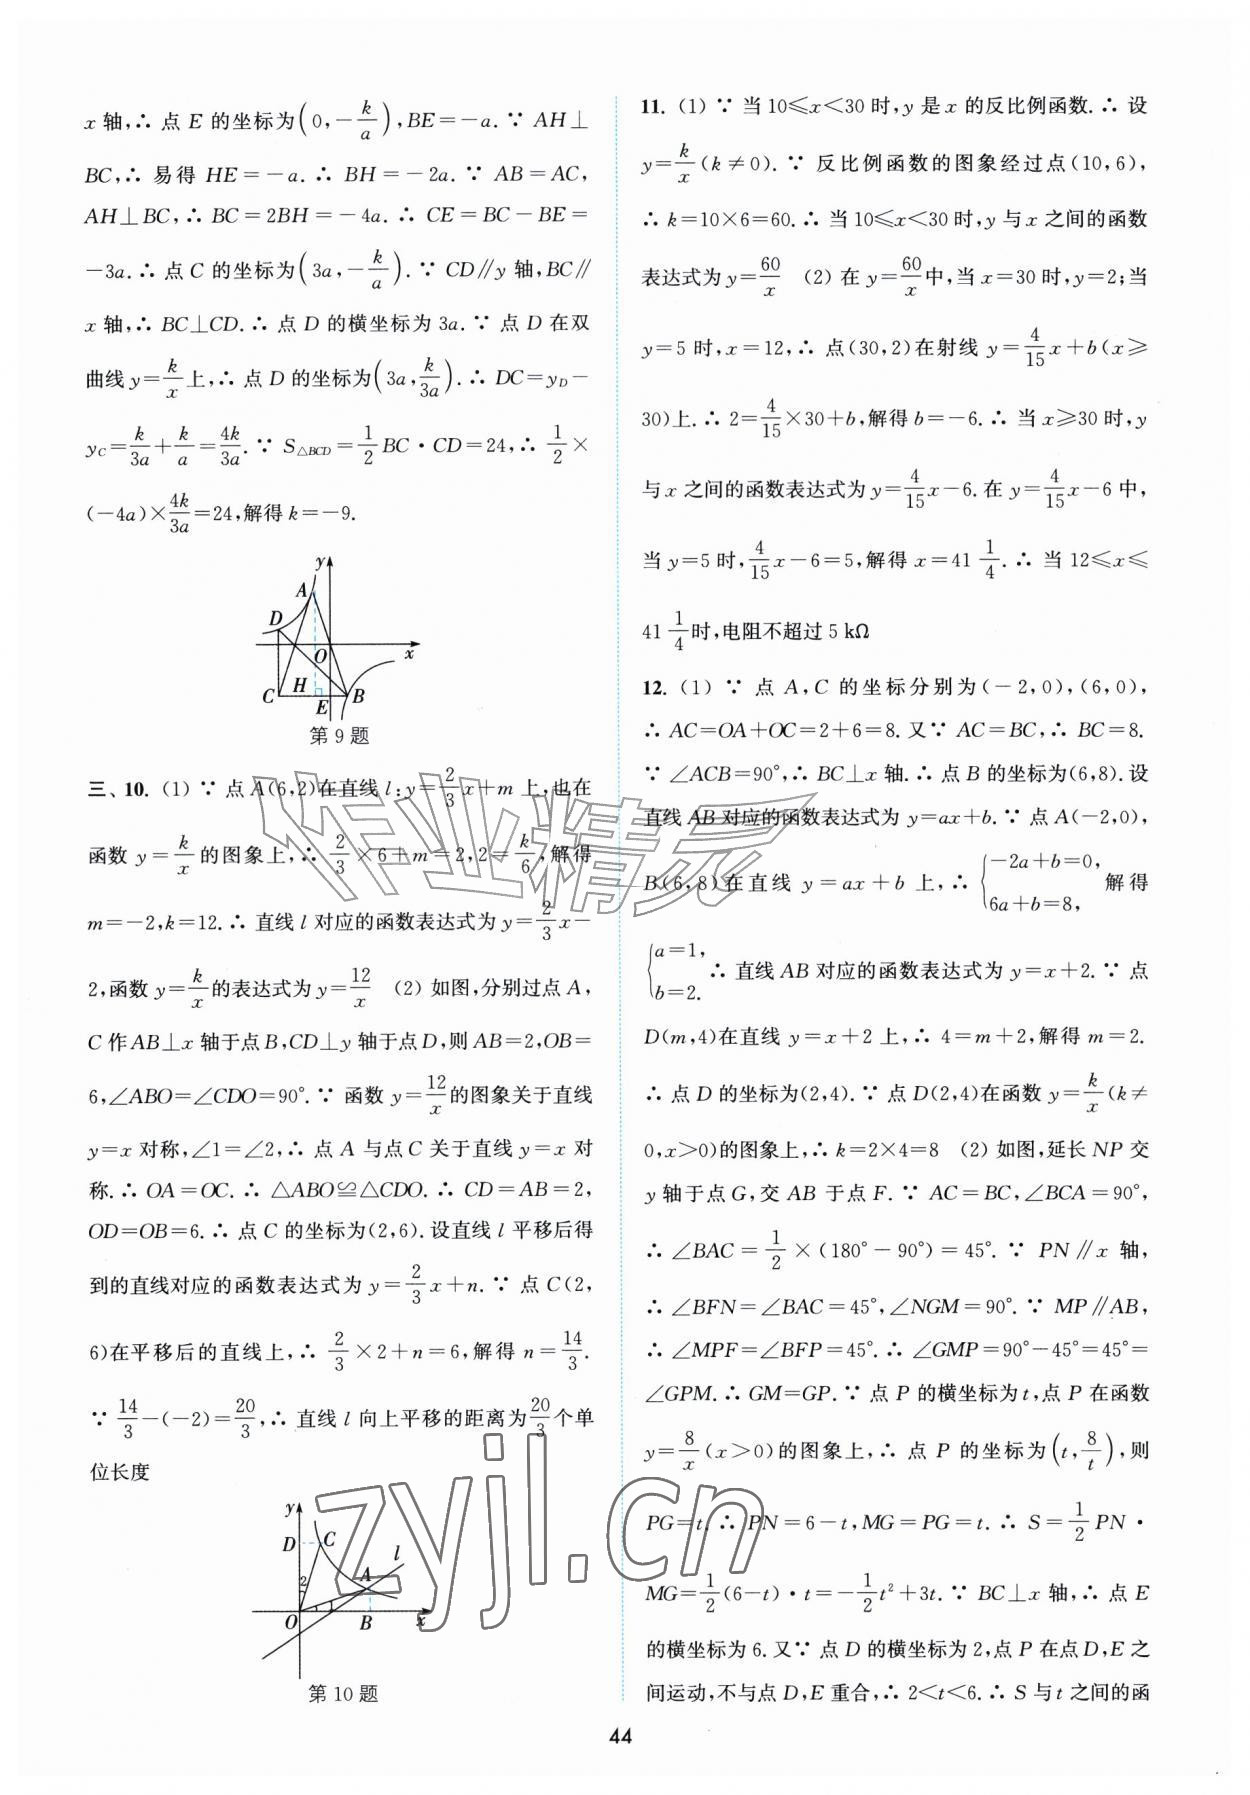 x 轴,∴ 点 E 的坐标为(0,-k/a),BE=-a.∵ AH⊥
BC,∴ 易得 HE=-a.∴ BH=-2a.∵ AB=AC,
AH⊥BC,∴ BC=2BH=-4a.∴ CE=BC-BE=
-3a.∴ 点 C 的坐标为(3a,-k/a).∵ CD∥y 轴,BC∥
x 轴,∴ BC⊥CD.∴ 点 D 的横坐标为 3a.∵ 点 D 在双
曲线 y=k/x 上,∴ 点 D 的坐标为(3a,k/3a).∴ DC=y_D-
y_C=k/3a+k/a=4k/3a.∵ S_△BCD=1/2 BC·CD=24,∴ 1/2×
(-4a)×4k/3a=24,解得 k=-9.
y
A
D
O
x
C
H
E
B
第 9 题
三、10. (1) ∵ 点 A(6,2)在直线 l:y=2/3 x+m 上,也在
函数 y=k/x 的图象上,∴ 2/3×6+m=2,2=k/6,解得
m=-2,k=12.∴ 直线 l 对应的函数表达式为 y=2/3 x-
2,函数 y=k/x 的表达式为 y=12/x (2) 如图,分别过点 A,
C 作 AB⊥x 轴于点 B,CD⊥y 轴于点 D,则 AB=2,OB=
6,∠ABO=∠CDO=90°.∵ 函数 y=12/x 的图象关于直线
y=x 对称,∠1=∠2,∴ 点 A 与点 C 关于直线 y=x 对
称.∴ OA=OC.∴ △ABO≌△CDO.∴ CD=AB=2,
OD=OB=6.∴ 点 C 的坐标为(2,6).设直线 l 平移后得
到的直线对应的函数表达式为 y=2/3 x+n.∵ 点 C(2,
6)在平移后的直线上,∴ 2/3×2+n=6,解得 n=14/3.
∵ 14/3-(-2)=20/3,∴ 直线 l 向上平移的距离为 20/3 个单
位长度
y
D
C
l
A
2
1
O
B
x
第 10 题
11. (1) ∵ 当 10≤x<30 时,y 是 x 的反比例函数.∴ 设
y=k/x(k≠0).∵ 反比例函数的图象经过点(10,6),
∴ k=10×6=60.∴ 当 10≤x<30 时,y 与 x 之间的函数
表达式为 y=60/x (2) 在 y=60/x 中,当 x=30 时,y=2;当
y=5 时,x=12,∴ 点(30,2)在射线 y=4/15 x+b(x≥
30)上.∴ 2=4/15×30+b,解得 b=-6.∴ 当 x≥30 时,y
与 x 之间的函数表达式为 y=4/15 x-6.在 y=4/15 x-6 中,
当 y=5 时,4/15 x-6=5,解得 x=41 1/4.∴ 当 12≤x≤
41 1/4 时,电阻不超过 5 kΩ
12. (1) ∵ 点 A,C 的坐标分别为(-2,0),(6,0),
∴ AC=OA+OC=2+6=8.又∵ AC=BC,∴ BC=8.
∵ ∠ACB=90°,∴ BC⊥x 轴.∴ 点 B 的坐标为(6,8).设
直线 AB 对应的函数表达式为 y=ax+b.∵ 点 A(-2,0),
B(6,8)在直线 y=ax+b 上,∴ {-2a+b=0, 6a+b=8, 解得
{a=1, b=2. ∴ 直线 AB 对应的函数表达式为 y=x+2.∵ 点
D(m,4)在直线 y=x+2 上,∴ 4=m+2,解得 m=2.
∴ 点 D 的坐标为(2,4).∵ 点 D(2,4)在函数 y=k/x(k≠
0,x>0)的图象上,∴ k=2×4=8 (2) 如图,延长 NP 交
y 轴于点 G,交 AB 于点 F.∵ AC=BC,∠BCA=90°,
∴ ∠BAC=1/2×(180°-90°)=45°.∵ PN∥x 轴,
∴ ∠BFN=∠BAC=45°,∠NGM=90°.∵ MP∥AB,
∴ ∠MPF=∠BFP=45°.∴ ∠GMP=90°-45°=45°=
∠GPM.∴ GM=GP.∵ 点 P 的横坐标为 t,点 P 在函数
y=8/x(x>0)的图象上,∴ 点 P 的坐标为(t,8/t),则
PG=t.∴ PN=6-t,MG=PG=t.∴ S=1/2 PN·
MG=1/2(6-t)·t=-1/2 t²+3t.∵ BC⊥x 轴,∴ 点 E
的横坐标为 6.又∵ 点 D 的横坐标为 2,点 P 在点 D,E 之
间运动,不与点 D,E 重合,∴ 2<t<6.∴ S 与 t 之间的函
作业精灵
zyjl.cn
44